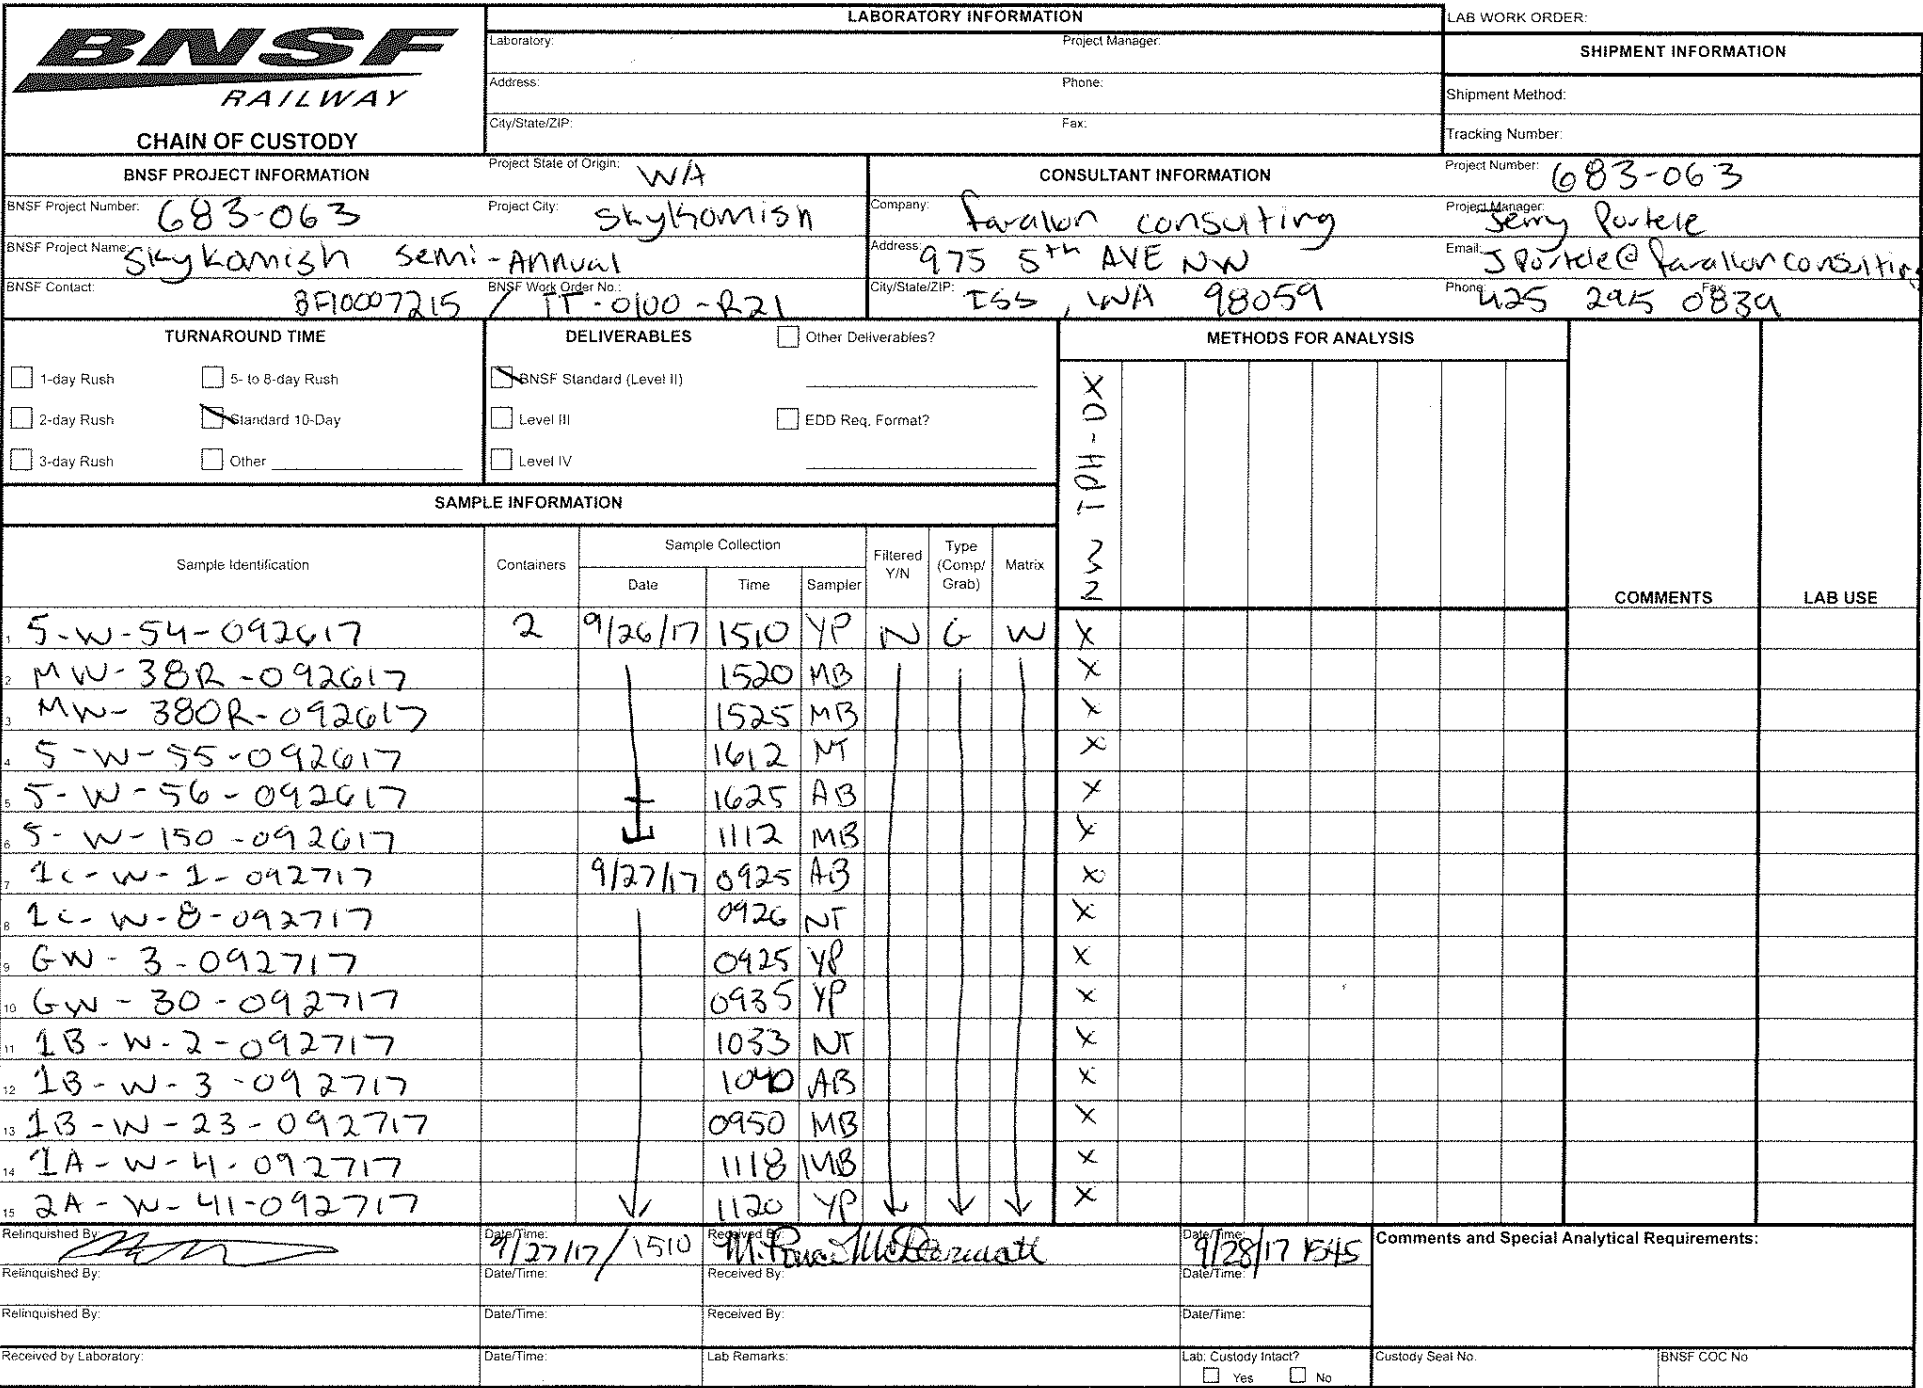 BNSF
RAILWAY
CHAIN OF CUSTODY
LABORATORY INFORMATION
Laboratory: Project Manager:
Address: Phone:
City/State/ZIP: Fax:
LAB WORK ORDER:
SHIPMENT INFORMATION
Shipment Method:
Tracking Number:
BNSF PROJECT INFORMATION Project State of Origin: WA
BNSF Project Number: 683-063 Project City: Skykomish
BNSF Project Name: Skykomish Semi-Annual
BNSF Contact: BF10007215 / BNSF Work Order No.: IT-0100-R21
CONSULTANT INFORMATION Project Number: 683-063
Company: farallon consulting Project Manager: Jerry Portele
Address: 975 5th AVE NW Email: JPortele@farallonconsulting
City/State/ZIP: ISS, WA 98059 Phone: 425 295 0839 Fax:
TURNAROUND TIME
1-day Rush 5- to 8-day Rush
2-day Rush Standard 10-Day
3-day Rush Other
DELIVERABLES Other Deliverables?
BNSF Standard (Level II)
Level III EDD Req, Format?
Level IV
METHODS FOR ANALYSIS
TPH-DX
COMMENTS
LAB USE
SAMPLE INFORMATION
Sample Identification Containers Sample Collection Date Time Sampler Filtered Y/N Type (Comp/Grab) Matrix
1 5-W-54-092617 2 9/26/17 1510 YP N G W X
2 MW-38R-092617 1520 MB X
3 MW-380R-092617 1525 MB X
4 5-W-55-092617 1612 NT X
5 5-W-56-092617 1625 AB X
6 5-W-150-092617 1112 MB X
7 1C-W-1-092717 9/27/17 0925 AB X
8 1C-W-8-092717 0926 NT X
9 GW-3-092717 0925 YP X
10 GW-30-092717 0935 YP X
11 1B-W-2-092717 1033 NT X
12 1B-W-3-092717 1040 AB X
13 1B-W-23-092717 0950 MB X
14 1A-W-4-092717 1118 MB X
15 2A-W-41-092717 1120 YP X
Relinquished By: Date/Time: 9/27/17 / 1510 Received By: Date/Time: 9/28/17 1545
Comments and Special Analytical Requirements:
Relinquished By: Date/Time: Received By: Date/Time:
Relinquished By: Date/Time: Received By: Date/Time:
Received by Laboratory: Date/Time: Lab Remarks: Lab: Custody Intact? Yes No Custody Seal No. BNSF COC No